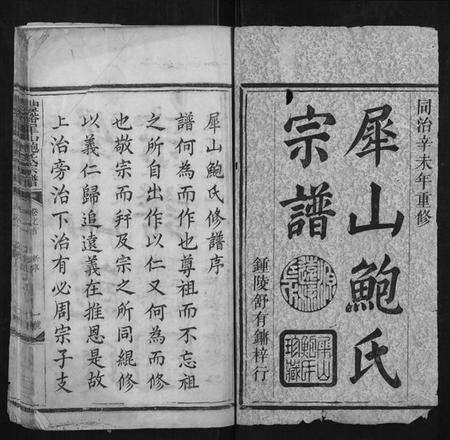 同治辛未年重修
犀山鮑氏
宗譜
鍾陵舒有鏞梓行
犀山
鮑氏
珍藏
犀山鮑氏修譜序
譜何為而作也尊祖而不忘祖
之所自出作以仁又何為而修
也敬宗而并及宗之所同緄修
以義仁歸追遠義在推恩是故
上治旁治下治有必周宗子支